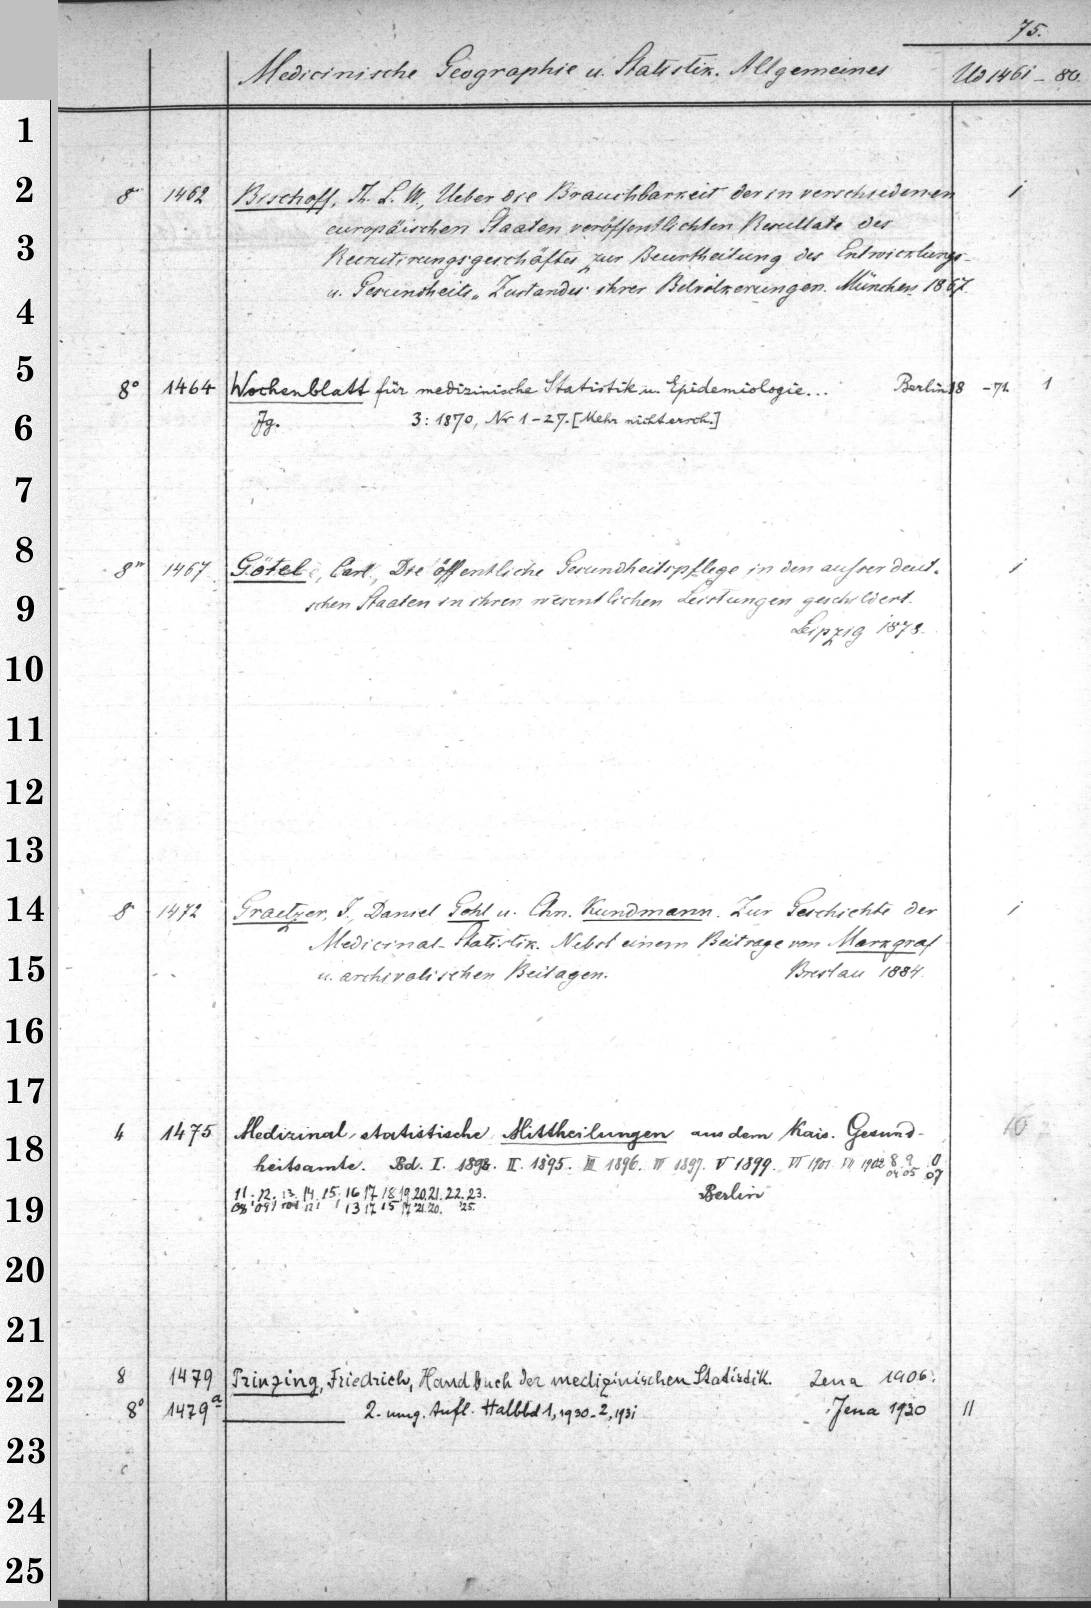 75.
Medicinische Geographie u. Statistik. Allgemeines Ud 1461 - 80.
1
2
3
4
5
6
7
8
9
10
11
12
13
14
15
16
17
18
19
20
21
22
23
24
25
8° 1462 Bischoff, Th. L. W., Ueber die Brauchbarkeit der in verschiedenen 1
europäischen Staaten veröffentlichten Resultate des
Recrutirungsgeschäftes zur Beurtheilung des Entwicklungs-
u. Gesundheits-Zustandes ihrer Bevölkerungen. München 1867.
8° 1464 Wochenblatt für medizinische Statistik u. Epidemiologie... Berlin 18 -71. 1
Jg. 3: 1870, Nr 1-27. [Mehr nicht ersch.]
8° 1467 Götel, Carl, Die öffentliche Gesundheitspflege in den ausserdeut- 1
schen Staaten in ihren wesentlichen Leistungen geschildert.
Leipzig 1878.
8° 1472 Graetzer, J., Daniel Gohl u. Chn. Kundmann. Zur Geschichte der 1
Medicinal-Statistik. Nebst einem Beitrage von Markgraf
u. archivalischen Beilagen. Breslau 1884.
4 1475 Medizinal-statistische Mittheilungen aus dem Kais. Gesund-
heitsamte. Bd. I. 1893. II. 1895. III 1896. IV 1897. V 1899. VI 1901 VII 1902 8 9
04 05 07
11. 12. 13. 14. 15. 16 17 18 19. 20. 21. 22. 23. Berlin
08 09 13 17 15 17 21. 20. 25.
8 1479 Prinzing, Friedrich, Handbuch der medizinischen Statistik. Jena 1906.
8° 1479a ——— 2. umg. Aufl. Halbbd 1, 1930-2, 1931 Jena 1930 II